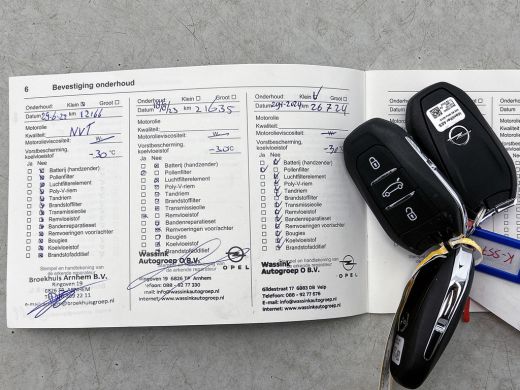 6 Bevestiging onderhoud
Onderhoud: Klein Groot
Datum 29-6-22 km 12166
Motorolie
Kwaliteit: NVT
Motorolieviscositeit:
Vorstbescherming,
koelvloeistof -30°C
Ja Nee
Batterij (handzender)
Pollenfilter
Luchtfilterelement
Poly-V-riem
Tandriem
Brandstoffilter
Transmissieolie
Remvloeistof
Bandenreparatieset
Remvoeringen voor/achter
Bougies
Koelvloeistof
Brandstofadditief
Stempel en handtekening van
de erkende reparateur
Broekhuis Arnhem B.V.
Ringven 19
Onderhoud: Klein Groot
Datum km 21635
Motorolie
Kwaliteit:
Motorolieviscositeit:
Vorstbescherming,
koelvloeistof -30C
Ja Nee
Batterij (handzender)
Pollenfilter
Luchtfilterelement
Poly-V-riem
Tandriem
Brandstoffilter
Transmissieolie
Remvloeistof
Bandenreparatieset
Remvoeringen voor/achter
Bougies
Koelvloeistof
Brandstofadditief
Wassink
Autogroep O B.V.
de erkende reparateur
OPEL
Telefoon: 088 - 92 77 330
e-mail: info@wassinkautogroep.nl
Internet: www.wassinkautogroep.nl
Onderhoud: Klein Groot
Datum km 26724
Motorolie
Kwaliteit:
Motorolieviscositeit:
Vorstbescherming,
koelvloeistof
Ja Nee
Batterij (handzender)
Pollenfilter
Luchtfilterelement
Poly-V-riem
Tandriem
Brandstoffilter
Transmissieolie
Remvloeistof
Bandenreparatieset
Remvoeringen voor/achter
Bougies
Koelvloeistof
Brandstofadditief
Wassink
Autogroep O B.V.
OPEL
Gildestraat 17 6883 DB Velp
Telefoon: 088 - 92 77 576
e-mail: info@wassinkautogroep.nl
Internet: www.wassinkautogroep.nl